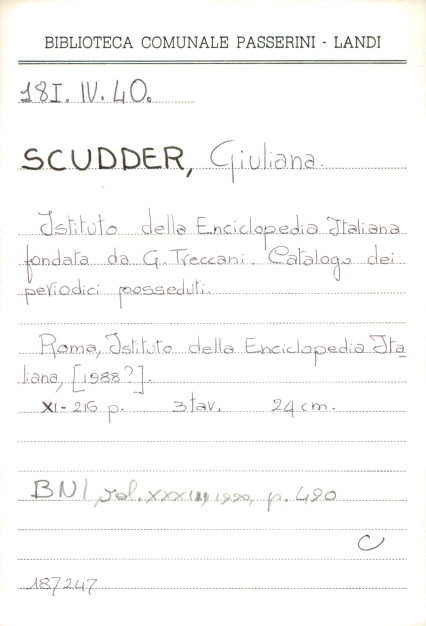 BIBLIOTECA COMUNALE PASSERINI - LANDI
18I. IV. 40.
SCUDDER, Giuliana.
Istituto della Enciclopedia Italiana
fondata da G. Treccani. Catalogo dei
periodici posseduti.
Roma, Istituto della Enciclopedia Ita
liana, [1988?].
XI-216 p. 3 tav. 24 cm.
BNI, vol. p. 490
C
187247